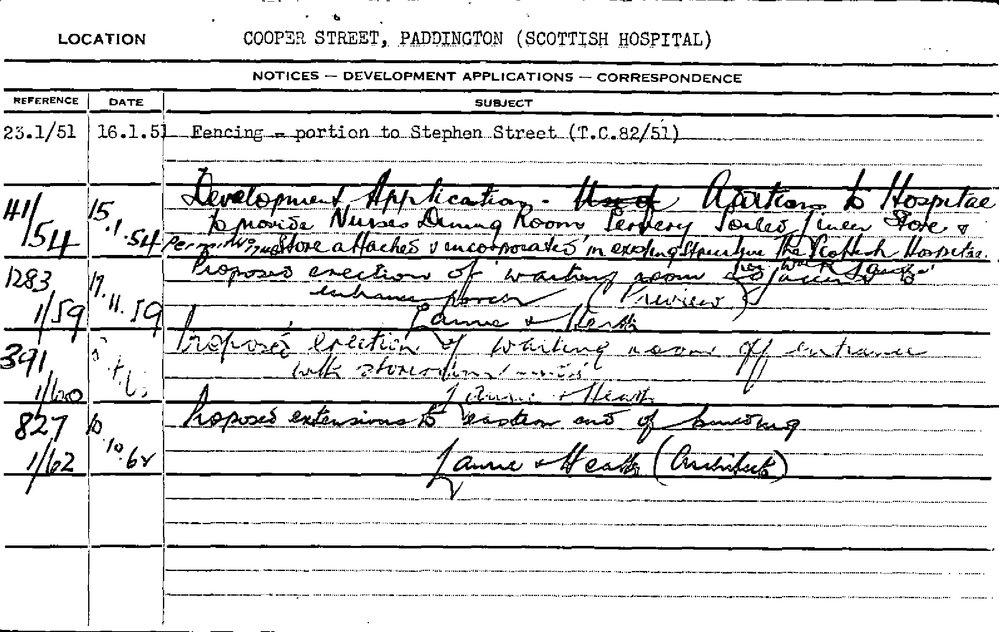 LOCATION COOPER STREET, PADDINGTON (SCOTTISH HOSPITAL)
NOTICES — DEVELOPMENT APPLICATIONS — CORRESPONDENCE
REFERENCE DATE SUBJECT
23.1/51 16.1.51 Fencing - portion to Stephen Street (T.C.82/51)
Development Application - Use of Additions to Hospital
141/54 15.1.54 to provide Nurses Dining Room Servery Soiled linen Store &
Store attached & incorporated in existing Structure The Scottish Hospital.
1283 17. Proposed erection of waiting room
1/59 11.59 entrance porch (Preview)
& Heath
391 Proposed erection of waiting room off entrance
1/60 with
& Heath
827 10 Proposed extensions to eastern end of building
1/62 10.62 & Heath (Architects)